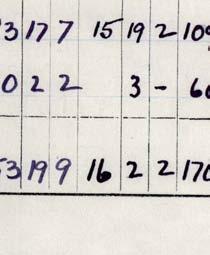 3 17 7 15 19 2 109
0 22 2 3 - 60
53 19 9 16 2 2 170